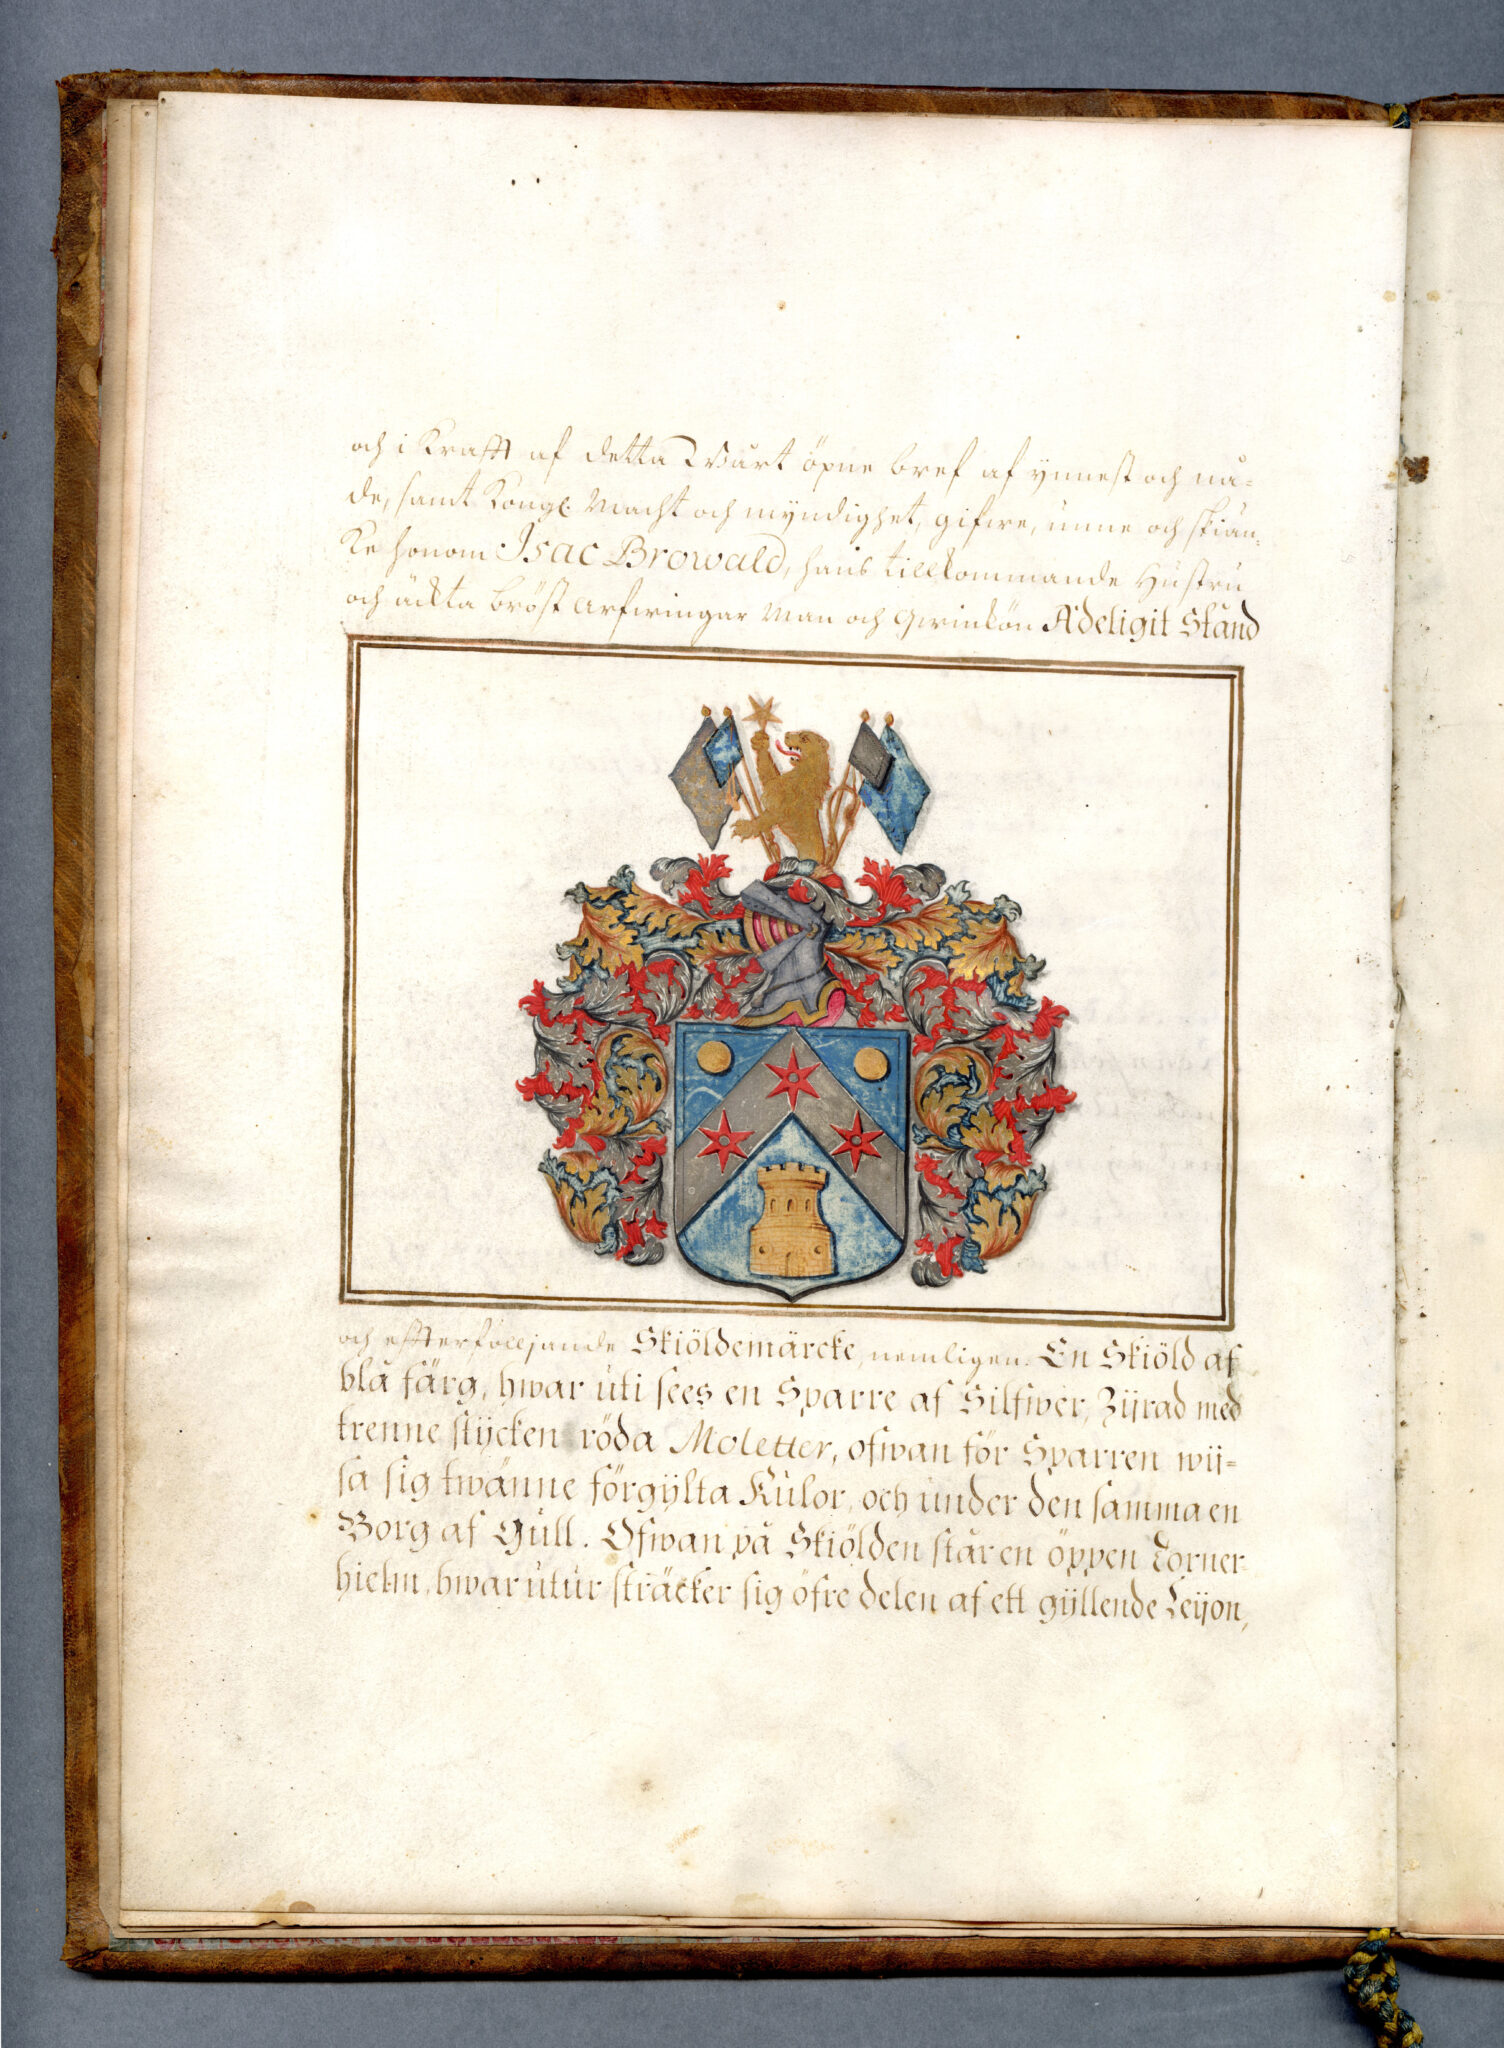 och i Krafft af detta Wårt öpne bref af ynnest och nå=
de, samt Kongl. Macht och myndighet, gifwe, unne och skiän=
ke honom Isac Browald, hans tillkommande Hustru
och ächta bröst arfwingar Man och Qwinkön Adeligit Stånd
och effterföljande Skiöldemärcke, nemligen. En Skiöld af
blå färg, hwar uti sees en Sparre af Silfwer, Zijrad med
trenne stycken röda Moletter, ofwan för Sparren wij=
sa sig twänne förgylta Kulor, och under den samma en
Borg af Gull. Ofwan på Skiölden står en öppen Torner-
hielm, hwar utur sträcker sig öfre delen af ett gyllende Leijon,